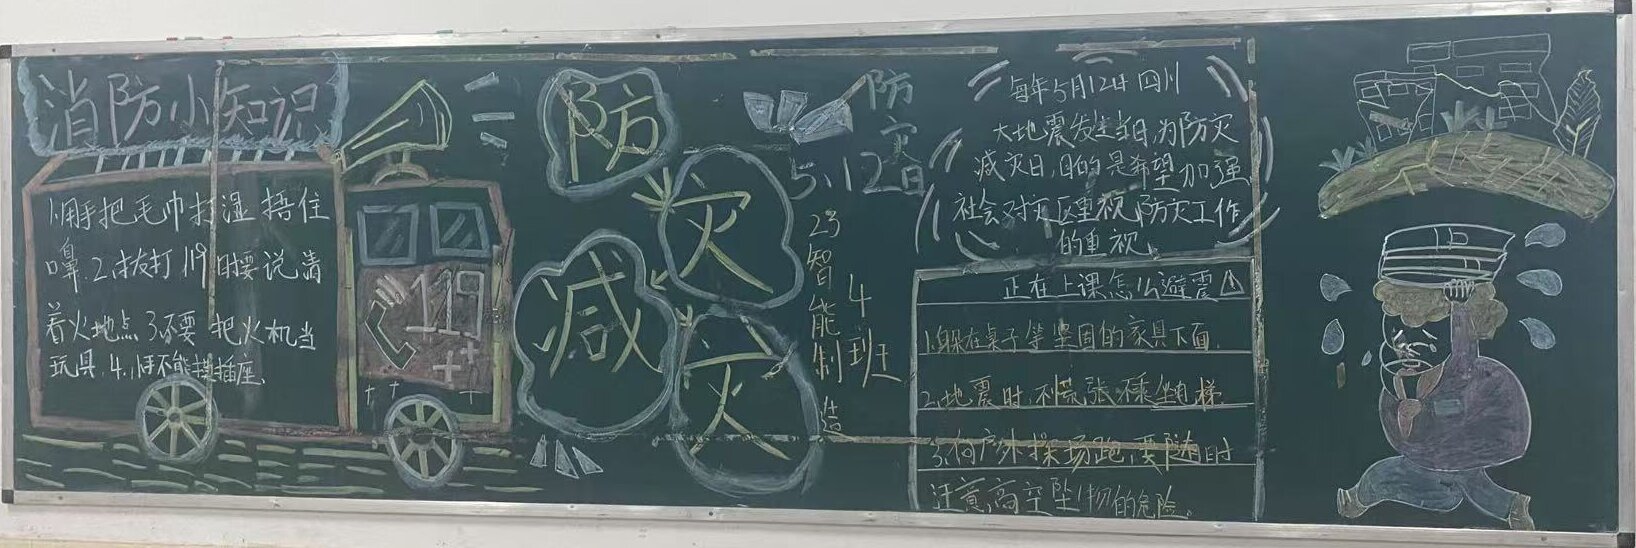 消防小知识
1.用手把毛巾打湿捂住
口鼻.2.拨打119时要说清
着火地点 3.不要把火机当
玩具.4.手不能摸插座.
119
防灾
减灾
防灾日
5.12
23智能制造
4班
每年5月12日四川
大地震发生当日,为防灾
减灾日,目的是希望加强
社会对灾区重视,防灾工作
的重视.
正在上课怎么避震
1.躲在桌子等坚固的家具下面.
2.地震时,不慌张不乘坐电梯
3.向户外操场跑,要随时
注意高空坠物的危险.